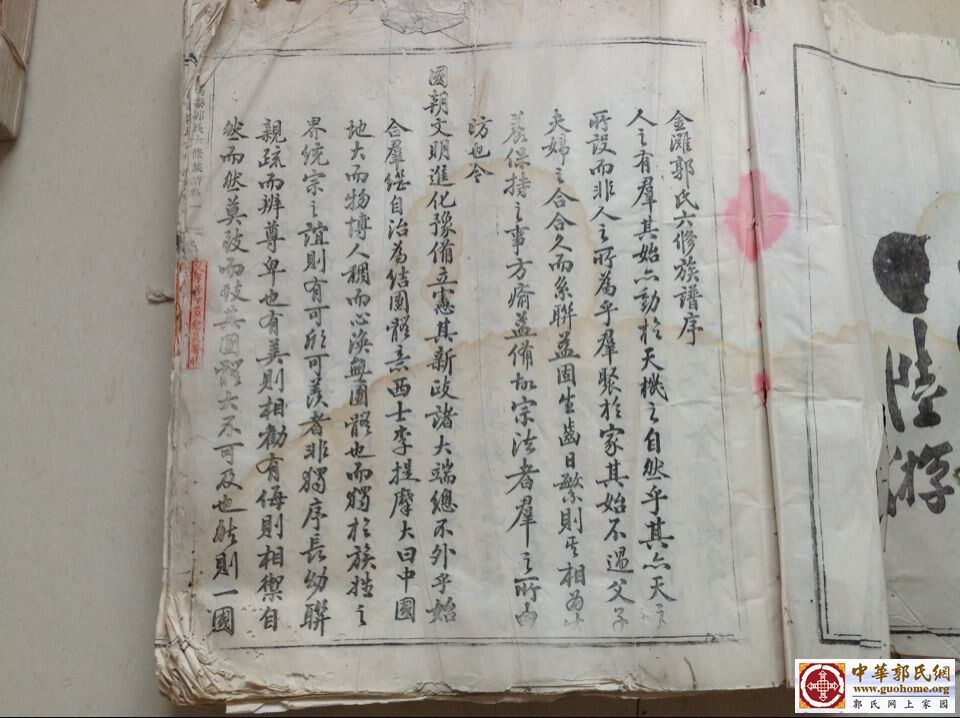 金灘郭氏六修族譜序
人之有羣其始亦動於天機之自然乎其亦天之
所設而非人之所為乎羣聚於家其始不過父子
夫婦之合合久而系聯益固生齒日繁則其相為
養保持之事方瘉益備故宗法者羣之所由
昉也今
國朝文明進化豫備立憲其新政諸大端總不外乎始
合羣繼自治為結團體泰西士李提摩太曰中國
地大而物博人稠而心渙無團體也而獨於族姓之
界統宗之誼則有可欣可羨者非獨序長幼聯
親疏而辨尊卑也有美則相勸有侮則相禦自
然而然莫或而歧其團體大不可及也然則一國
郭氏六修族譜
陸游
中華郭氏網
www.guohome.org
郭氏網上家園